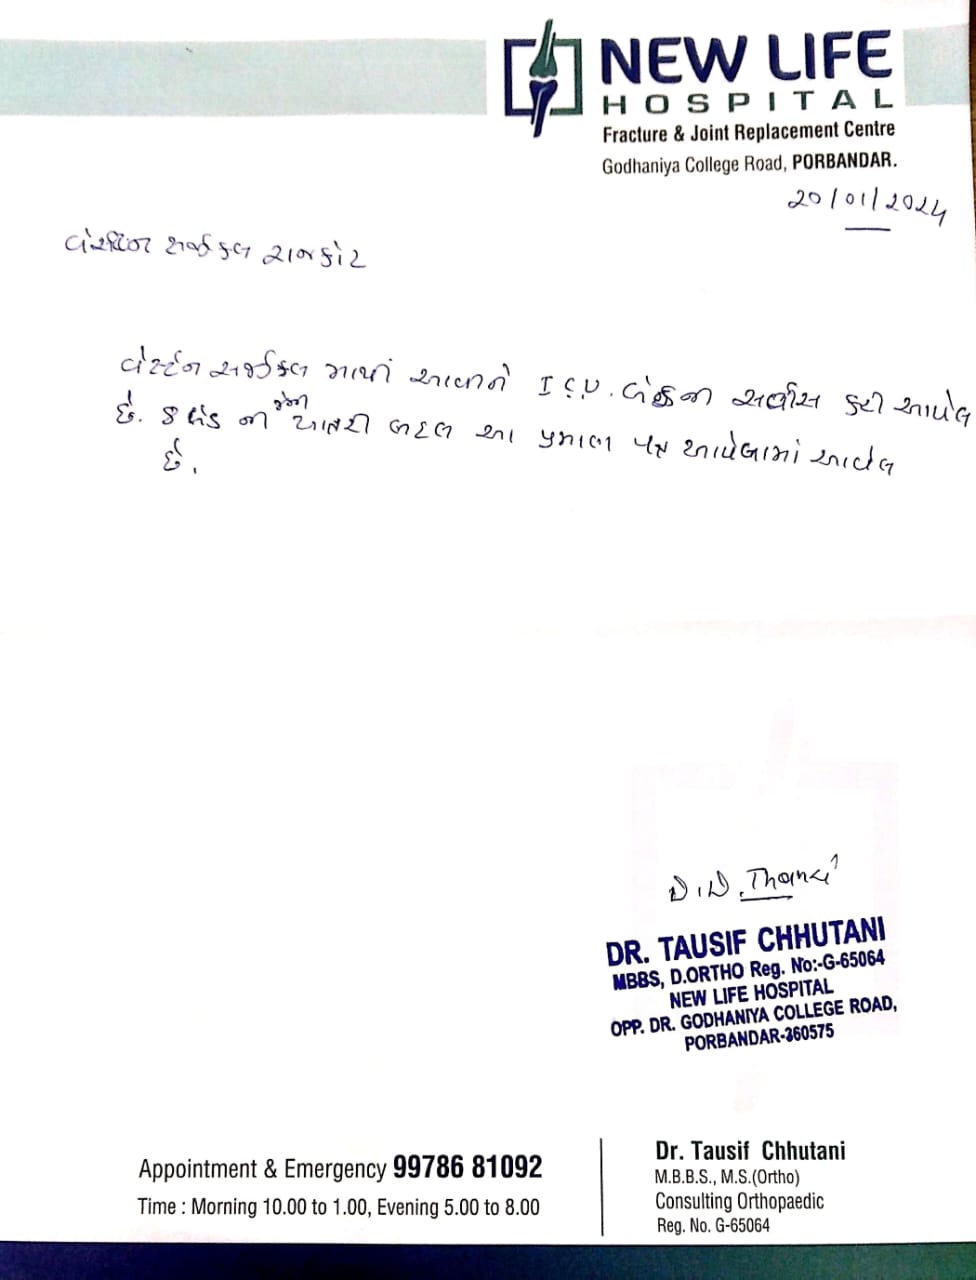 NEW LIFE
HOSPITAL
Fracture & Joint Replacement Centre
Godhaniya College Road, PORBANDAR.
20/01/2024
સર્જીકલ રાજકોટ
સર્જીકલ માંથી આવીને I.C.U. બેડની સર્વીસ કરી આપેલ
છે. ૪ બેડ ની જેની ખાતરી બદલ આ પ્રમાણ પત્ર આપેલામાં આવેલ
છે.
D.D. Thanki
DR. TAUSIF CHHUTANI
MBBS, D.ORTHO Reg. No:-G-65064
NEW LIFE HOSPITAL
OPP. DR. GODHANIYA COLLEGE ROAD,
PORBANDAR-360575
Appointment & Emergency 99786 81092
Time : Morning 10.00 to 1.00, Evening 5.00 to 8.00
Dr. Tausif Chhutani
M.B.B.S., M.S.(Ortho)
Consulting Orthopaedic
Reg. No. G-65064